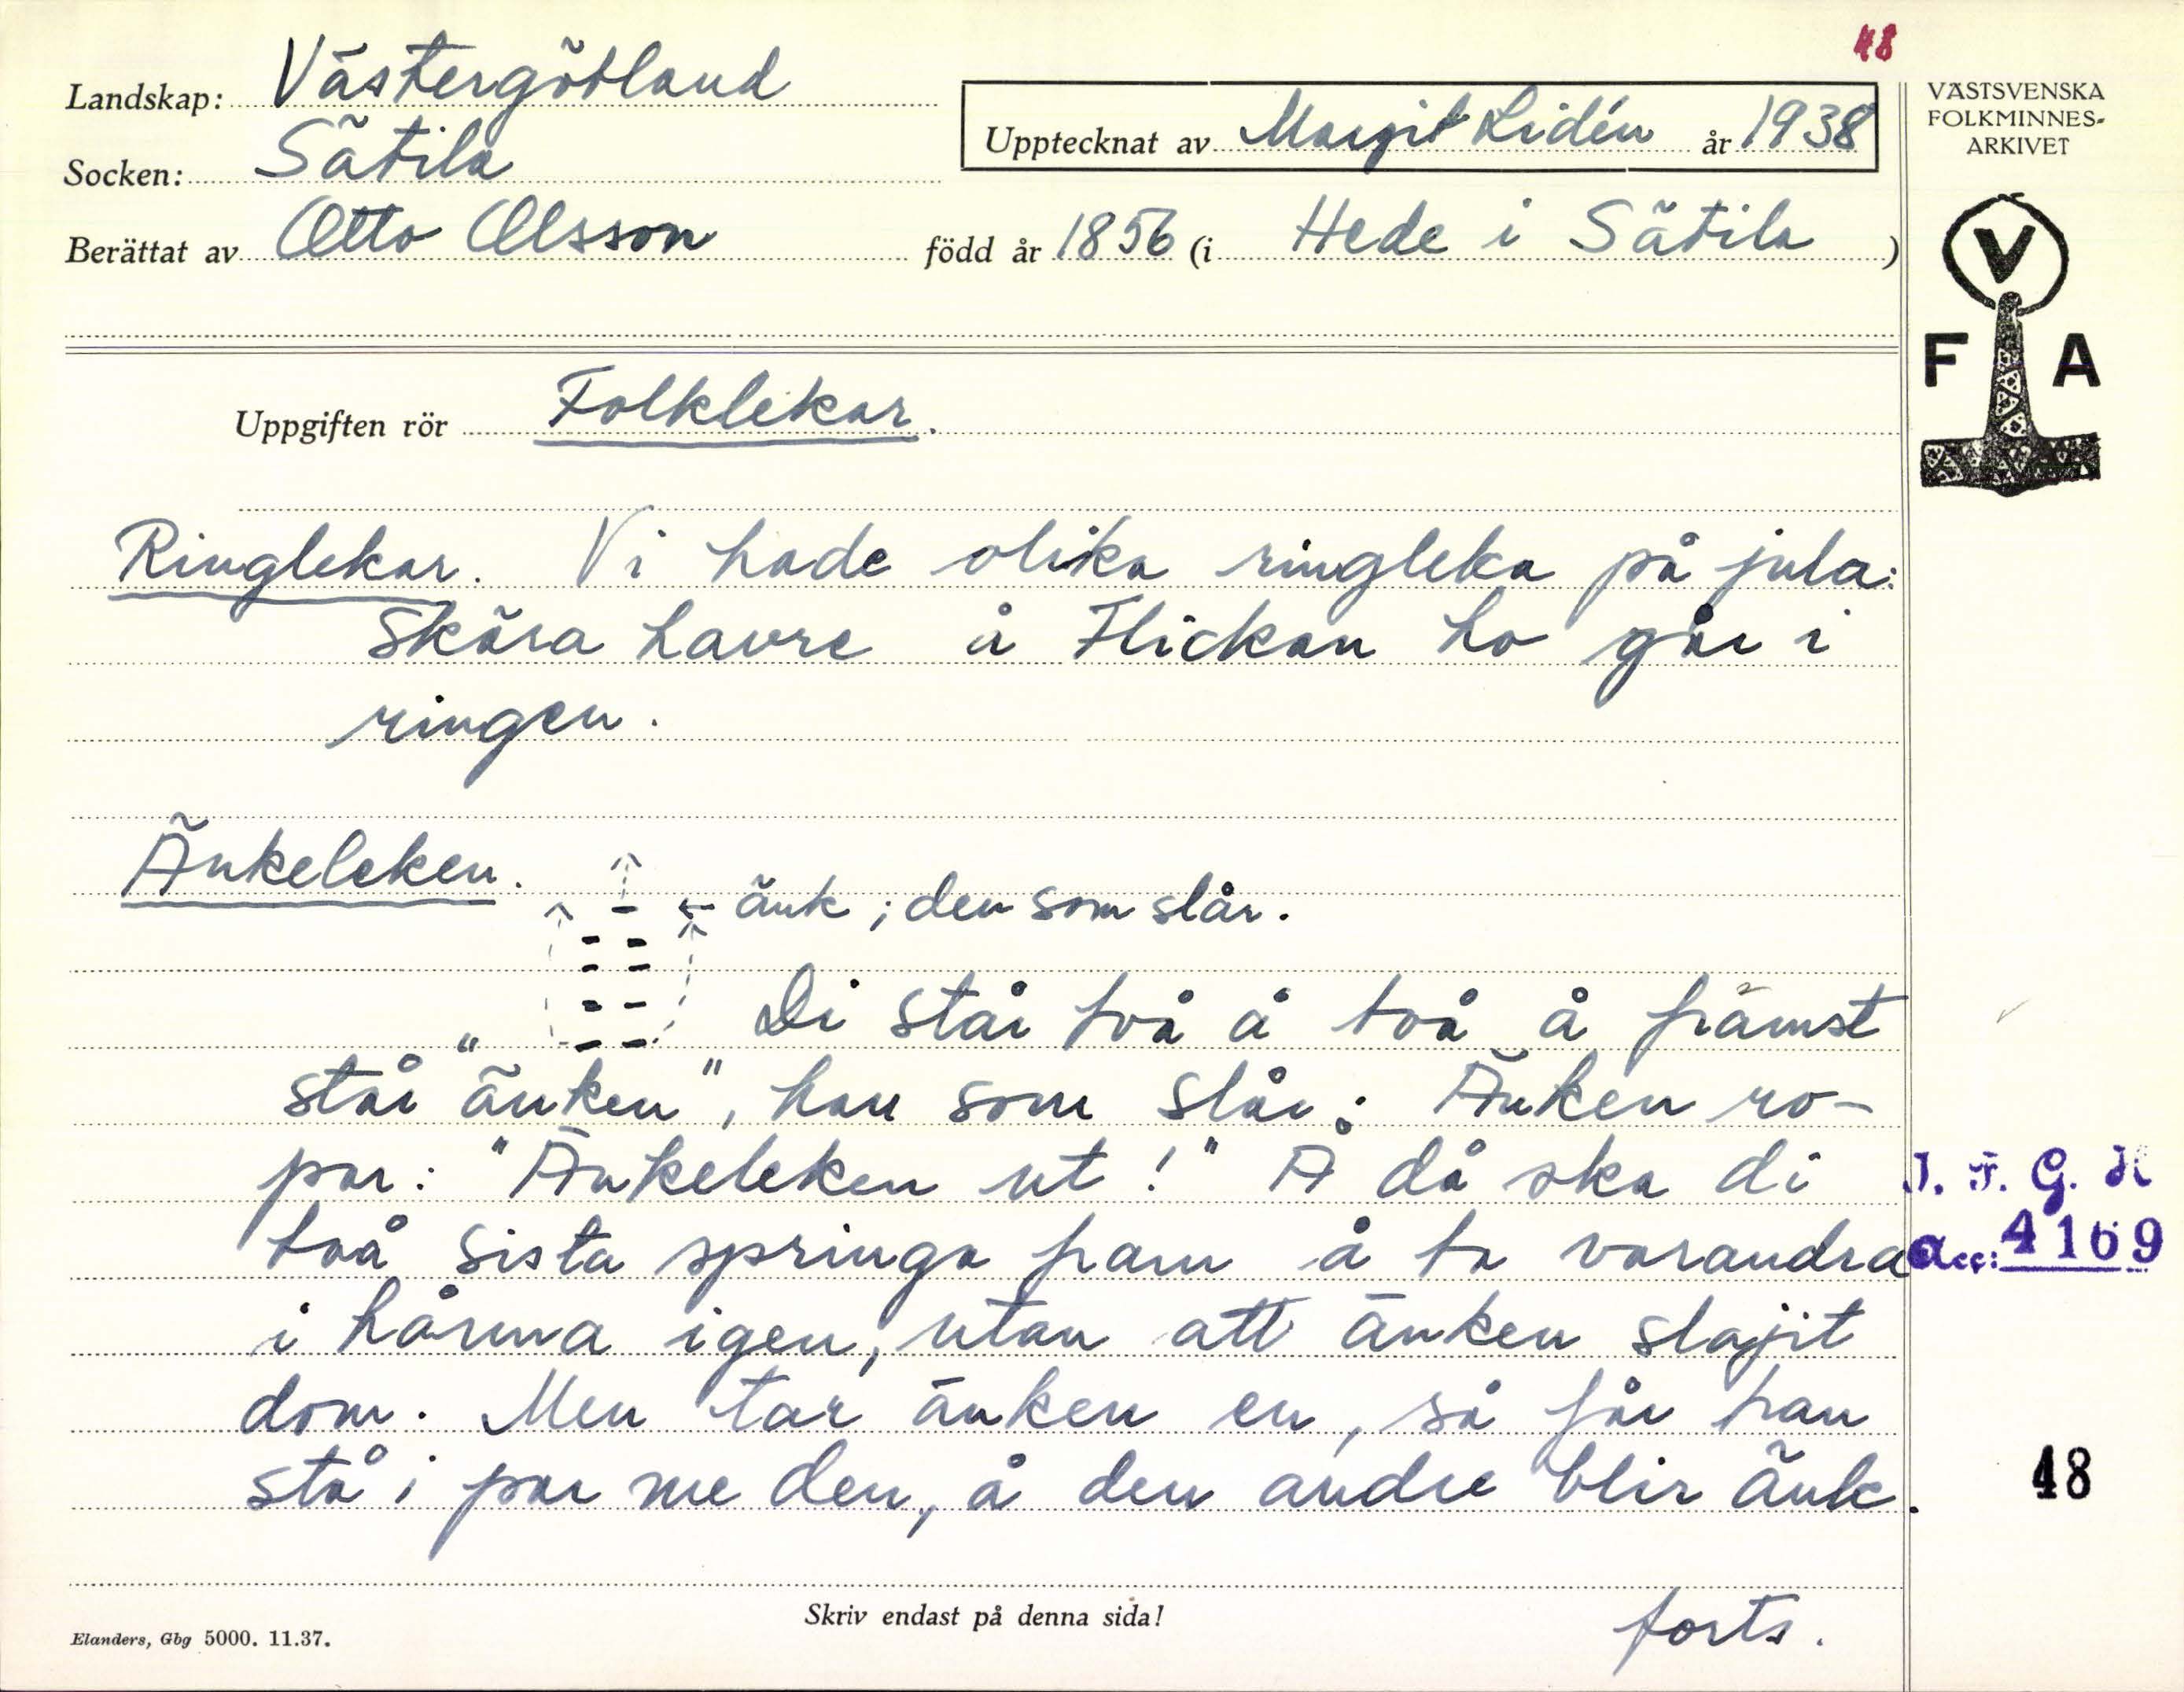 48
Landskap: Västergötland
Socken: Sätila
Upptecknat av Margit Lidén år 1938
Berättat av Otto Olsson född år 1856 (i Hede i Sätila )
VÄSTSVENSKA
FOLKMINNES-
ARKIVET
V
F A
Uppgiften rör Folklekar.
Ringlekar. Vi hade olika ringleka på jula:
Skära havre å Flickan ho går i
ringen.
Änkeleken.
← änk; den som slår.
Di står två å två å främst
står "änken", han som slår: Änken ro-
par: "Änkeleken ut!" Å då ska di
två sista springa fram å ta varandra
i hänna igen, utan att änken slajit
dom. Men tar änken en, så får han
stå i par me den, å den andre blir änk.
I. F. G. H
Acc: 4169
48
forts.
Skriv endast på denna sida!
Elanders, Gbg 5000. 11.37.